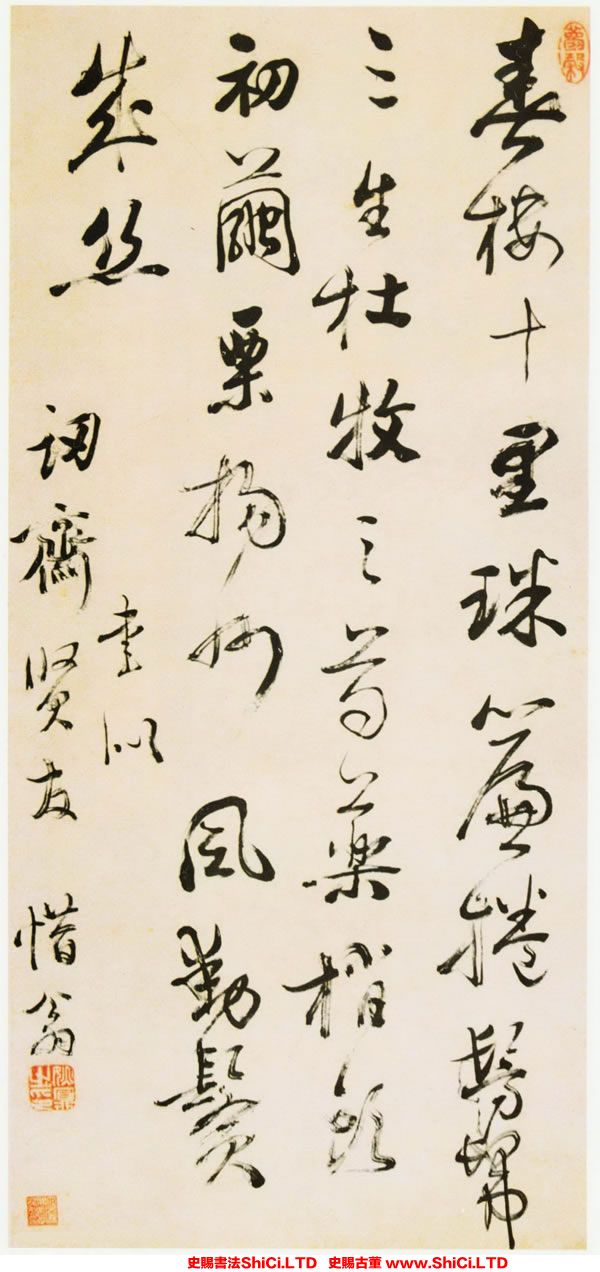 春樓十里珠簾捲髣髴
三生杜牧之芍藥梢頭
初繭栗揚州風動鬢
成絲
書似
訒齋賢友 惜翁
史賜書法ShiCi.LTD 史賜古董 www.ShiCi.LTD